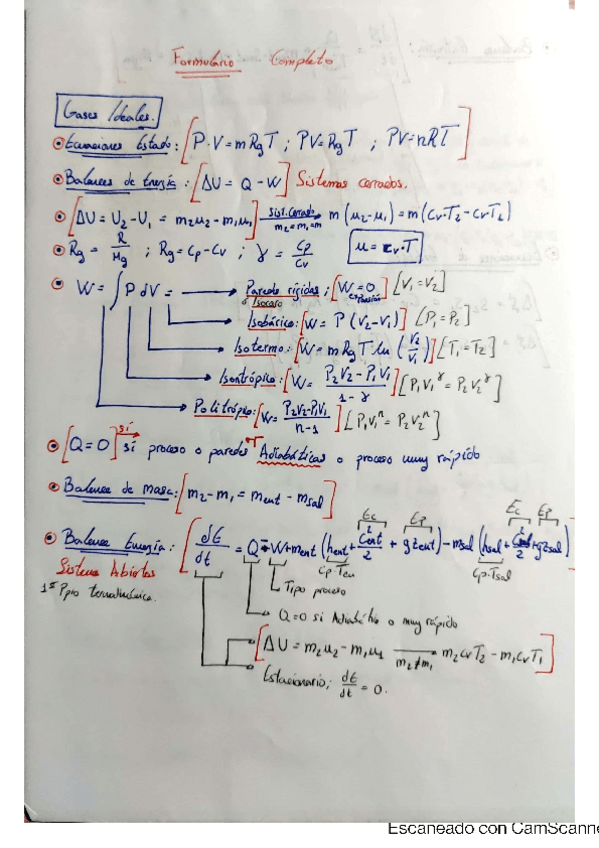 Formulario Completo
Gases Ideales.
Ecuaciones Estado: [P·V = m Rg T ; PV = Rg T ; PV = nRT]
Balances de Energía: [ΔU = Q - W] Sistemas cerrados.
[ΔU = U2 - U1 = m2u2 - m1u1] sist. Cerrado m2=m1=m m(u2-u1) = m(Cv·T2 - CvT1)
Rg = R/Mg ; Rg = Cp - Cv ; γ = Cp/Cv u = cv·T
W = ∫P dV = Paredes rígidas ; [W = 0] [V1 = V2]
o Isocoro
Isobárico: [W = P(V2-V1)] [P1 = P2]
Isotermo: [W = m Rg T ln (V2/V1)] [T1 = T2]
Isentrópico: [W = P2V2 - P1V1 / 1-γ] [P1V1^γ = P2V2^γ]
Politrópico: [W = P2V2-P1V1 / n-1] [P1V1^n = P2V2^n]
[Q = 0] sí si proceso o paredes Adiabáticas o proceso muy rápido
Balance de masa: [m2 - m1 = ment - msal]
Ec Ep Ec Ep
Balance Energía: [dE/dt = Q - W + ment (hent + Cent²/2 + gzent) - msal (hsal + Csal²/2 + gzsal)]
Sistema Abiertos
1er Ppio termodinámica.
Cp·Tsal
Tipo proceso
Q=0 si Adiabático o muy rápido
[ΔU = m2u2 - m1u1 m2≠m1 m2cvT2 - m1cvT1]
Estacionario; dE/dt = 0.
Escaneado con CamScanne